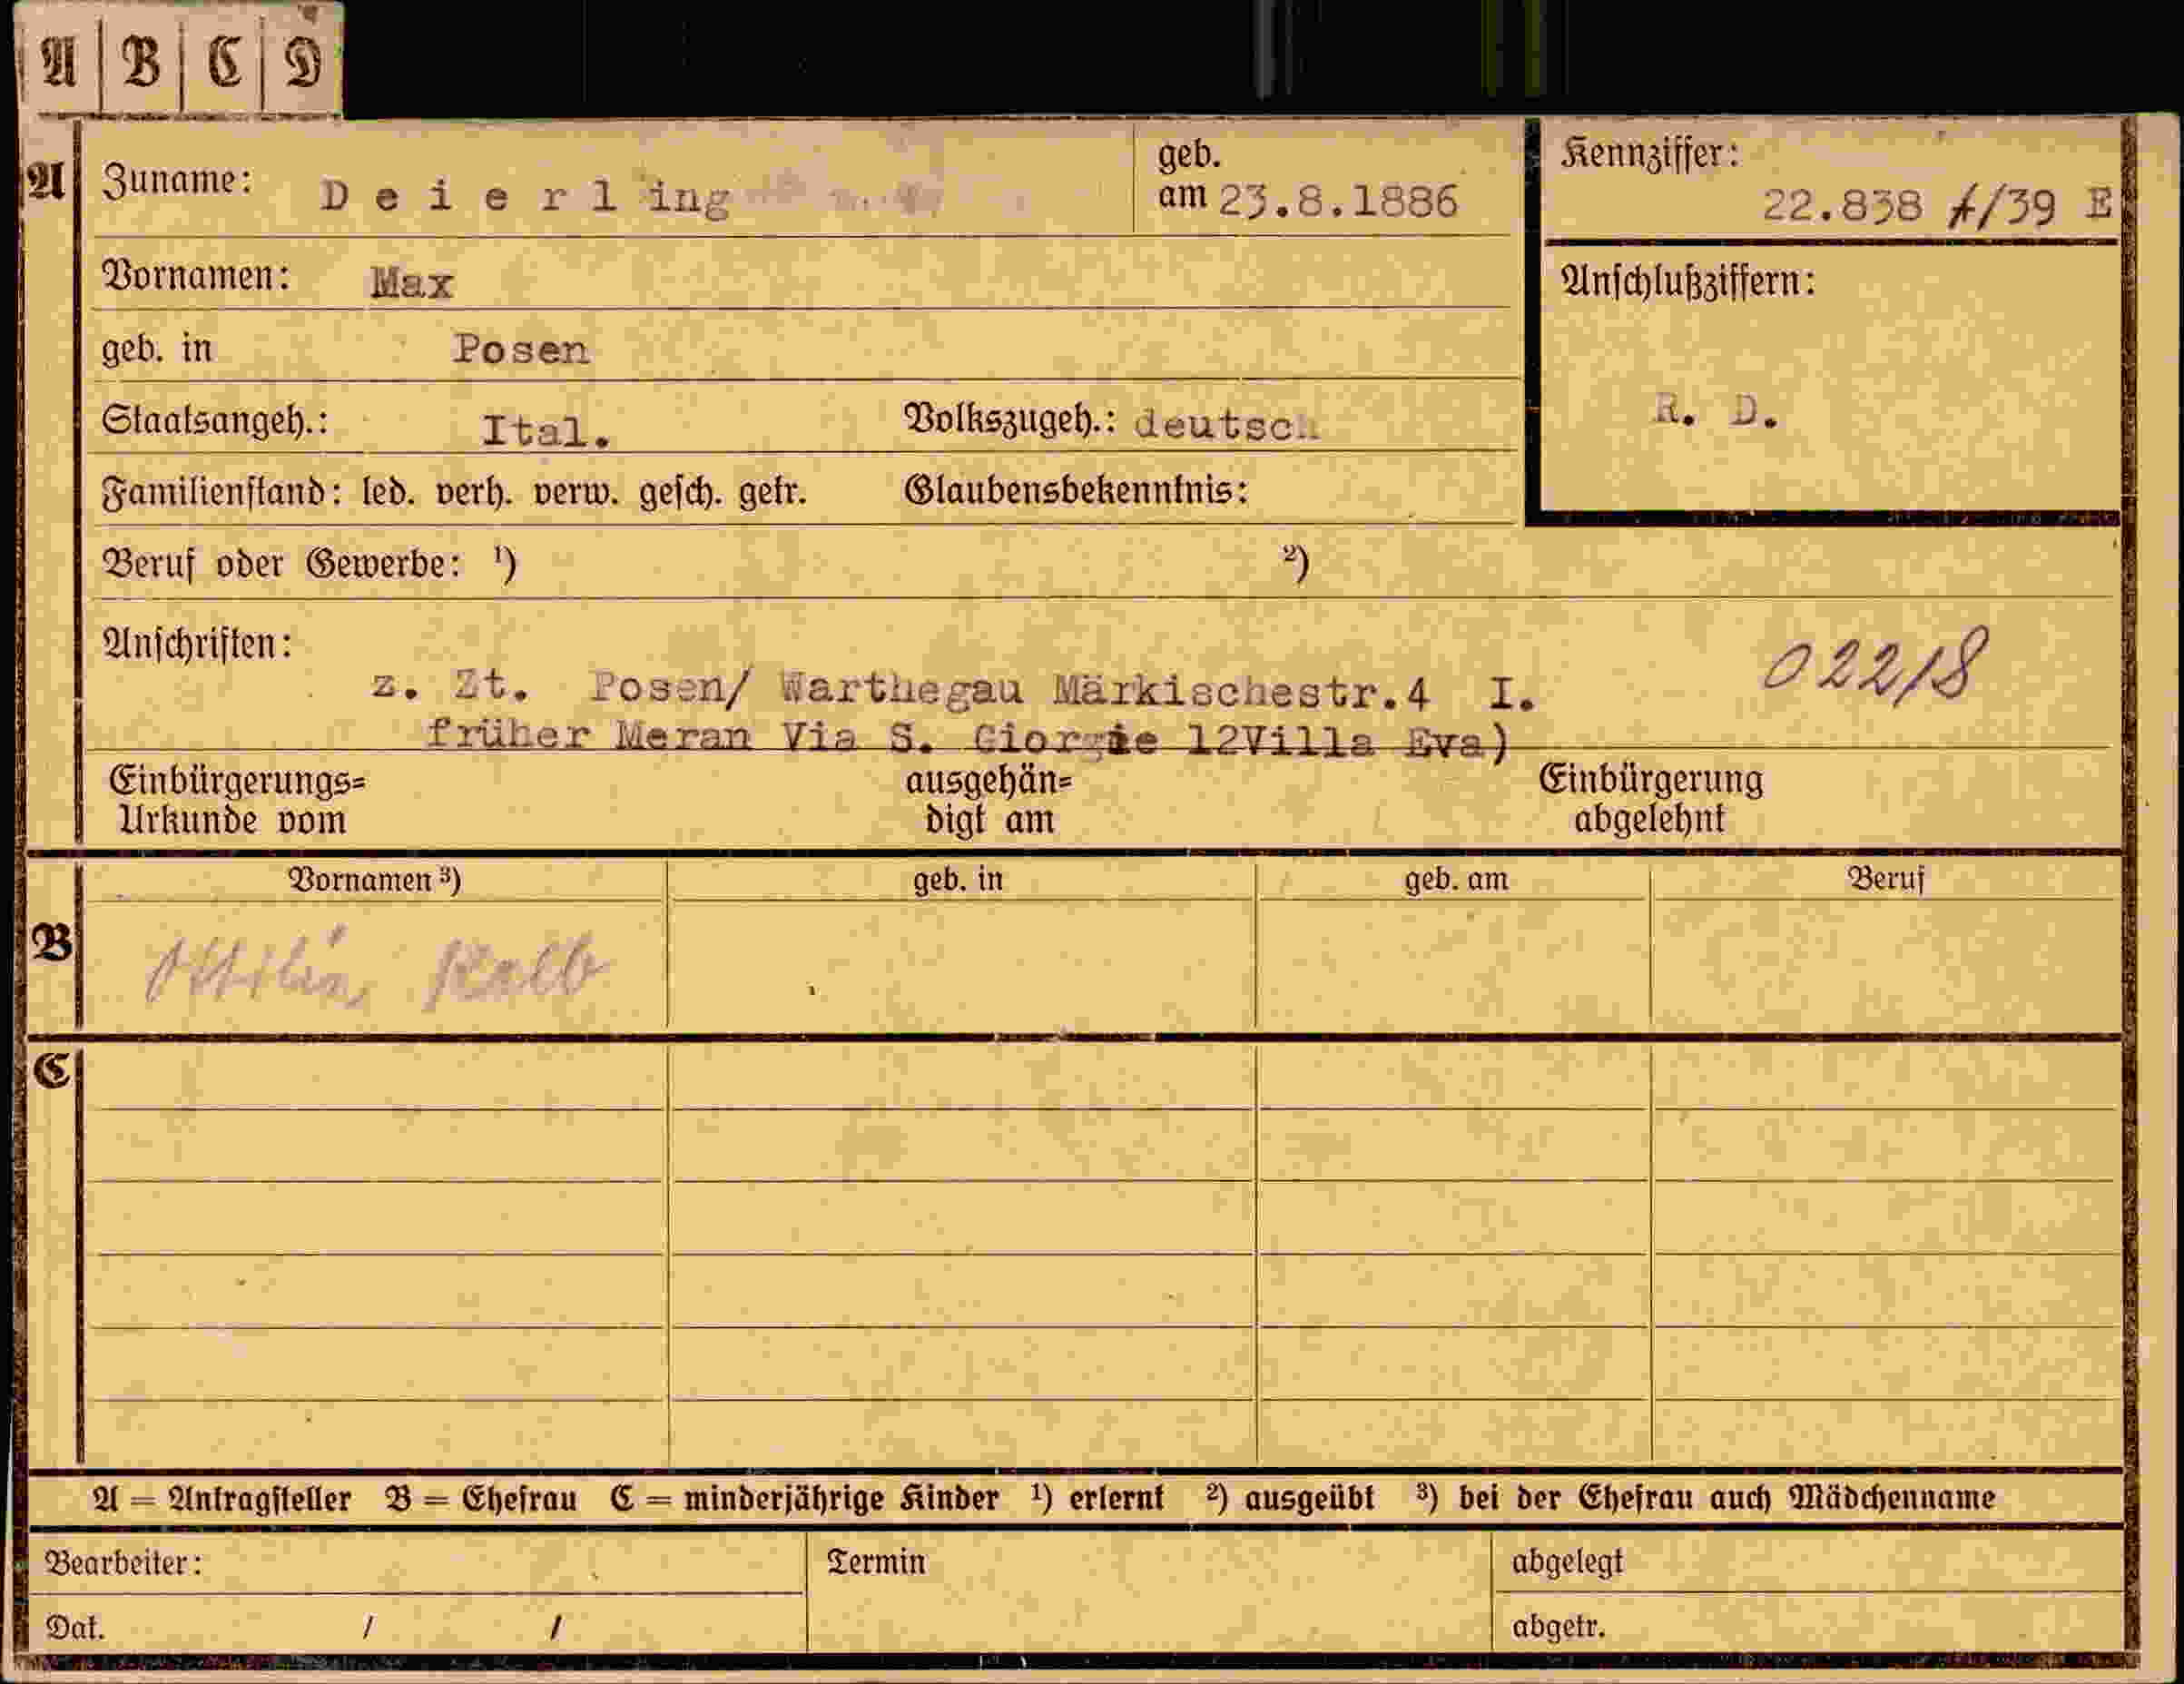 A B C D
A Zuname: Deierling geb. am 23.8.1886 Kennziffer: 22.838 /39 E
Vornamen: Max Anschlußziffern:
geb. in Posen
R. D.
Staatsangeh.: Ital. Volkszugeh.: deutsch
Familienstand: led. verh. verw. gesch. getr. Glaubensbekenntnis:
Beruf oder Gewerbe: ¹) ²)
Anschriften: 022/8
z. Zt. Posen/ Warthegau Märkischestr.4 I.
früher Meran Via S. Giorgie 12Villa Eva)
Einbürgerungs= ausgehän= Einbürgerung
Urkunde vom digt am abgelehnt
Vornamen ³) geb. in geb. am Beruf
B Kalb
C
A = Antragsteller B = Ehefrau C = minderjährige Kinder ¹) erlernt ²) ausgeübt ³) bei der Ehefrau auch Mädchenname
Bearbeiter: Termin abgelegt
Dat. / / abgetr.